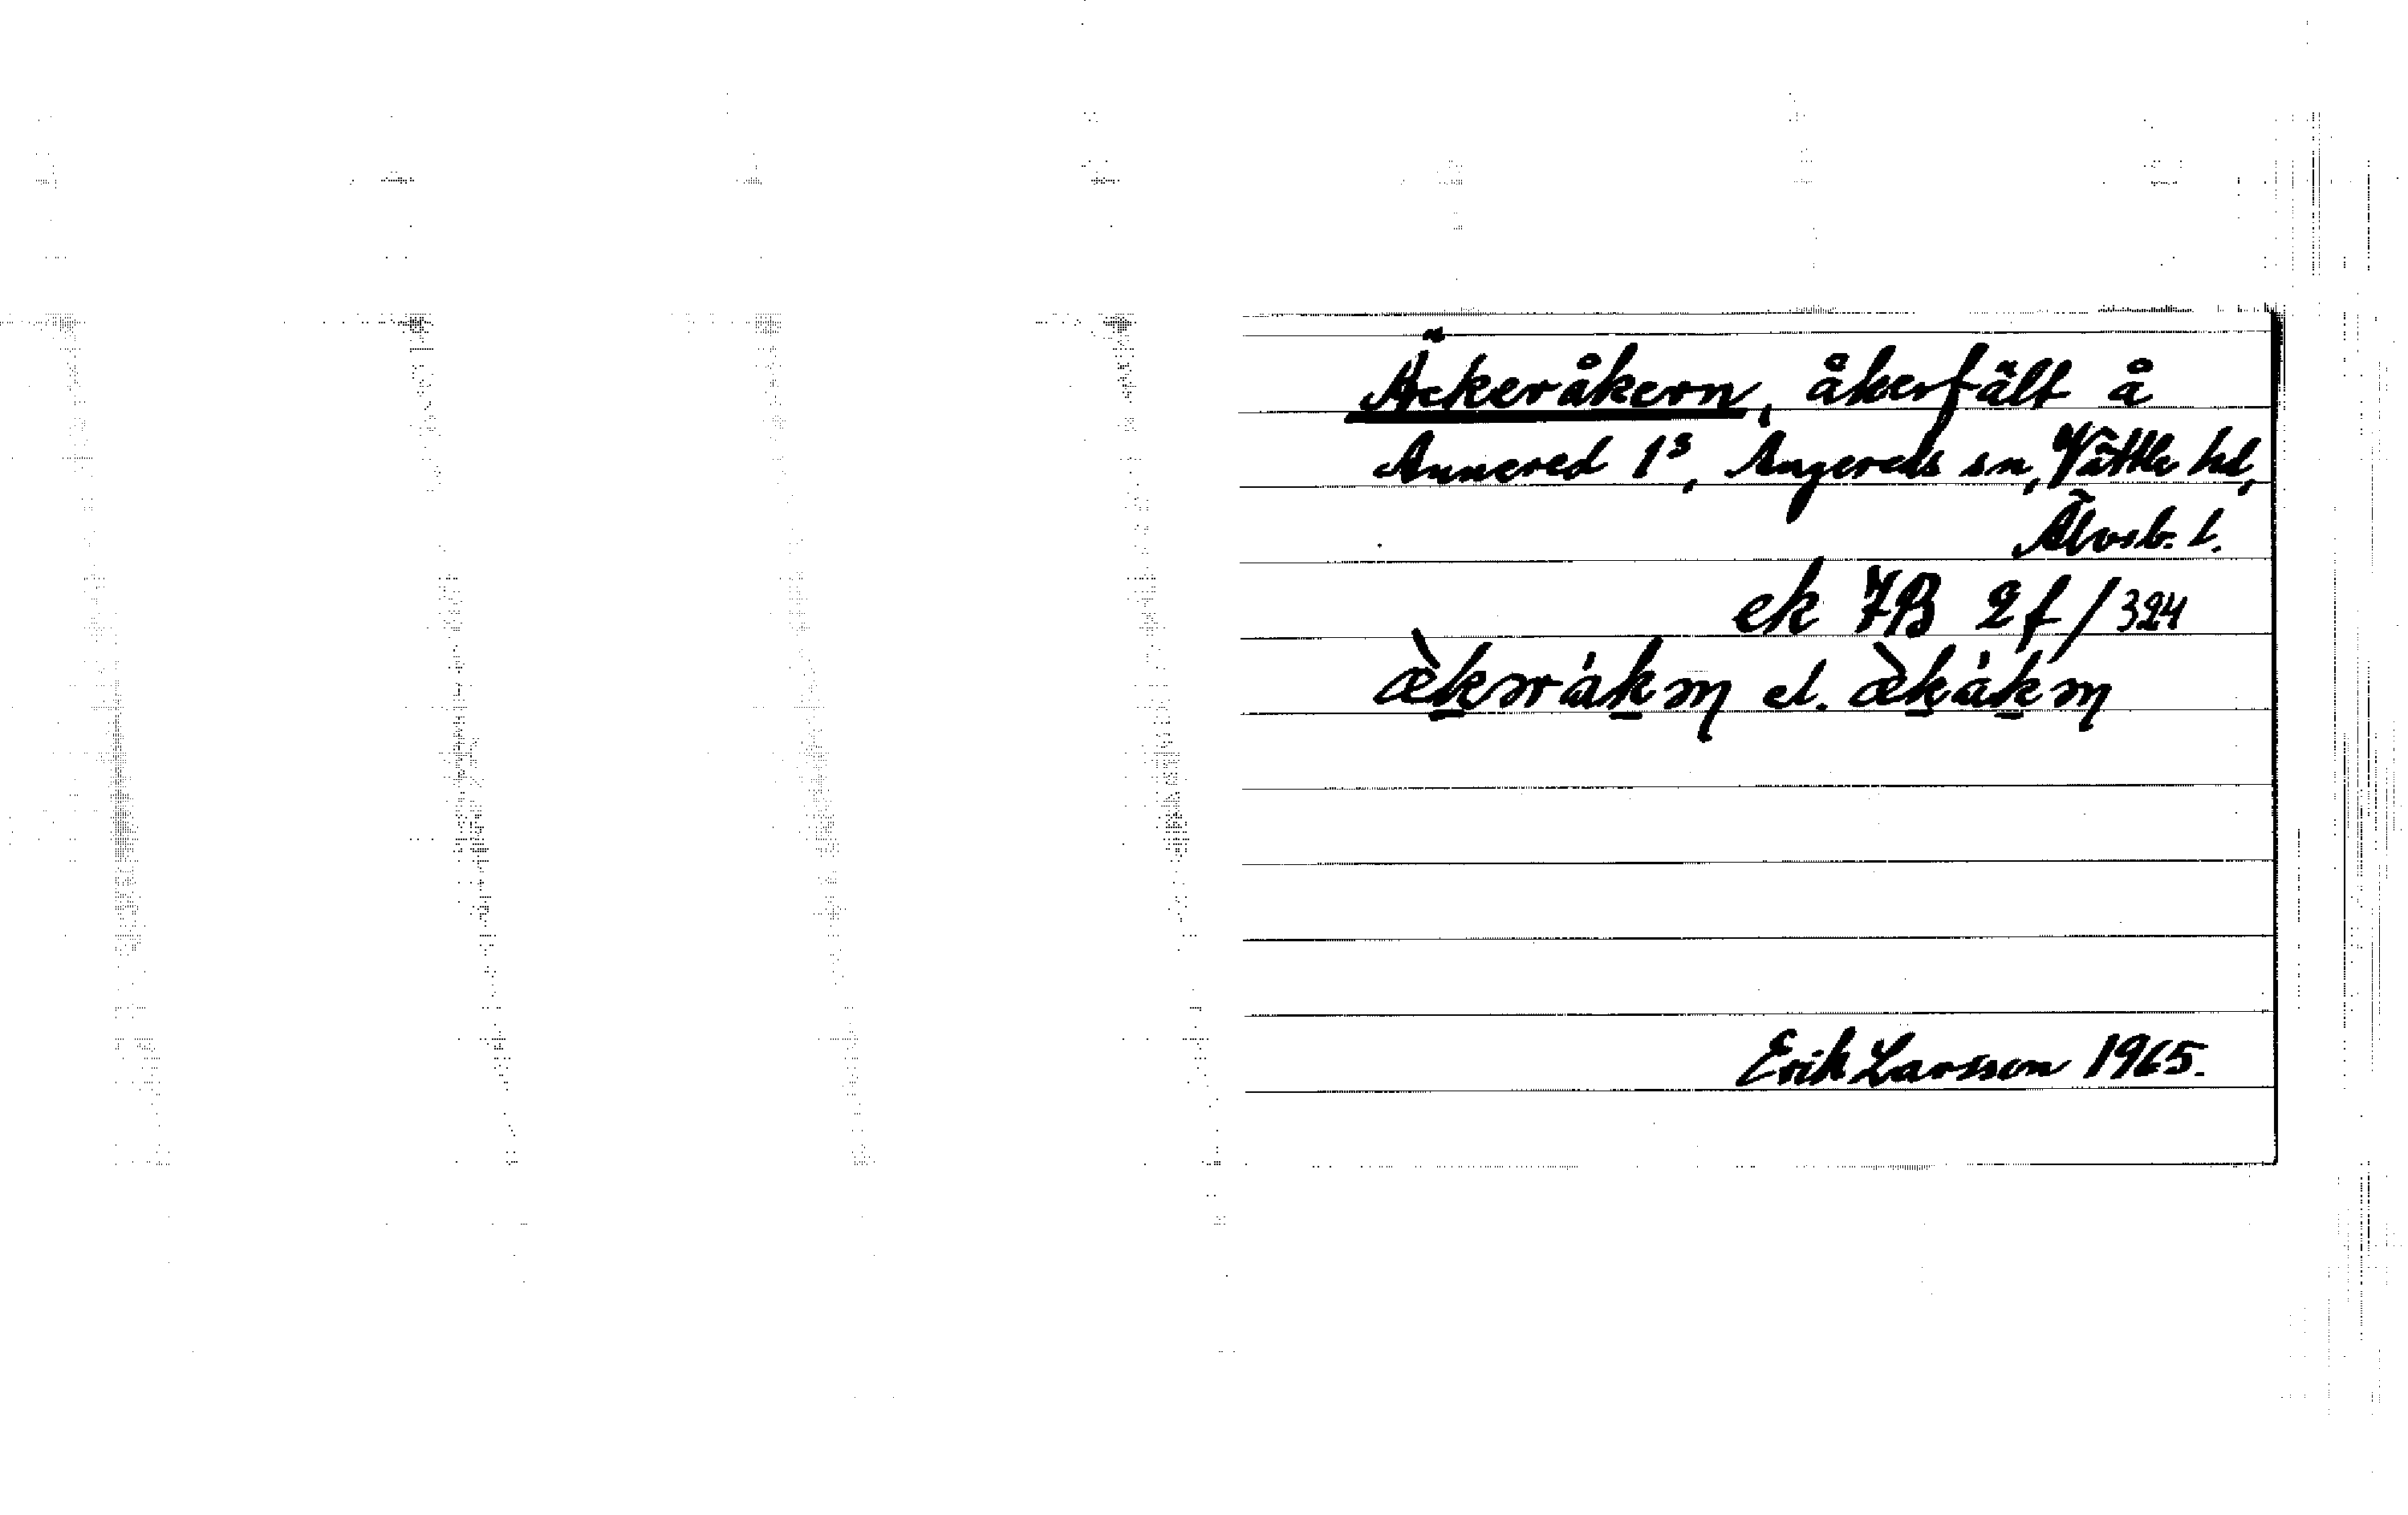 Äckeråkern, åkerfält å
Annered 1³, Angereds sn, Vättle hd,
Älvsb. l.
ek 7B 2f/324
el.
Erik Larsson 1965.